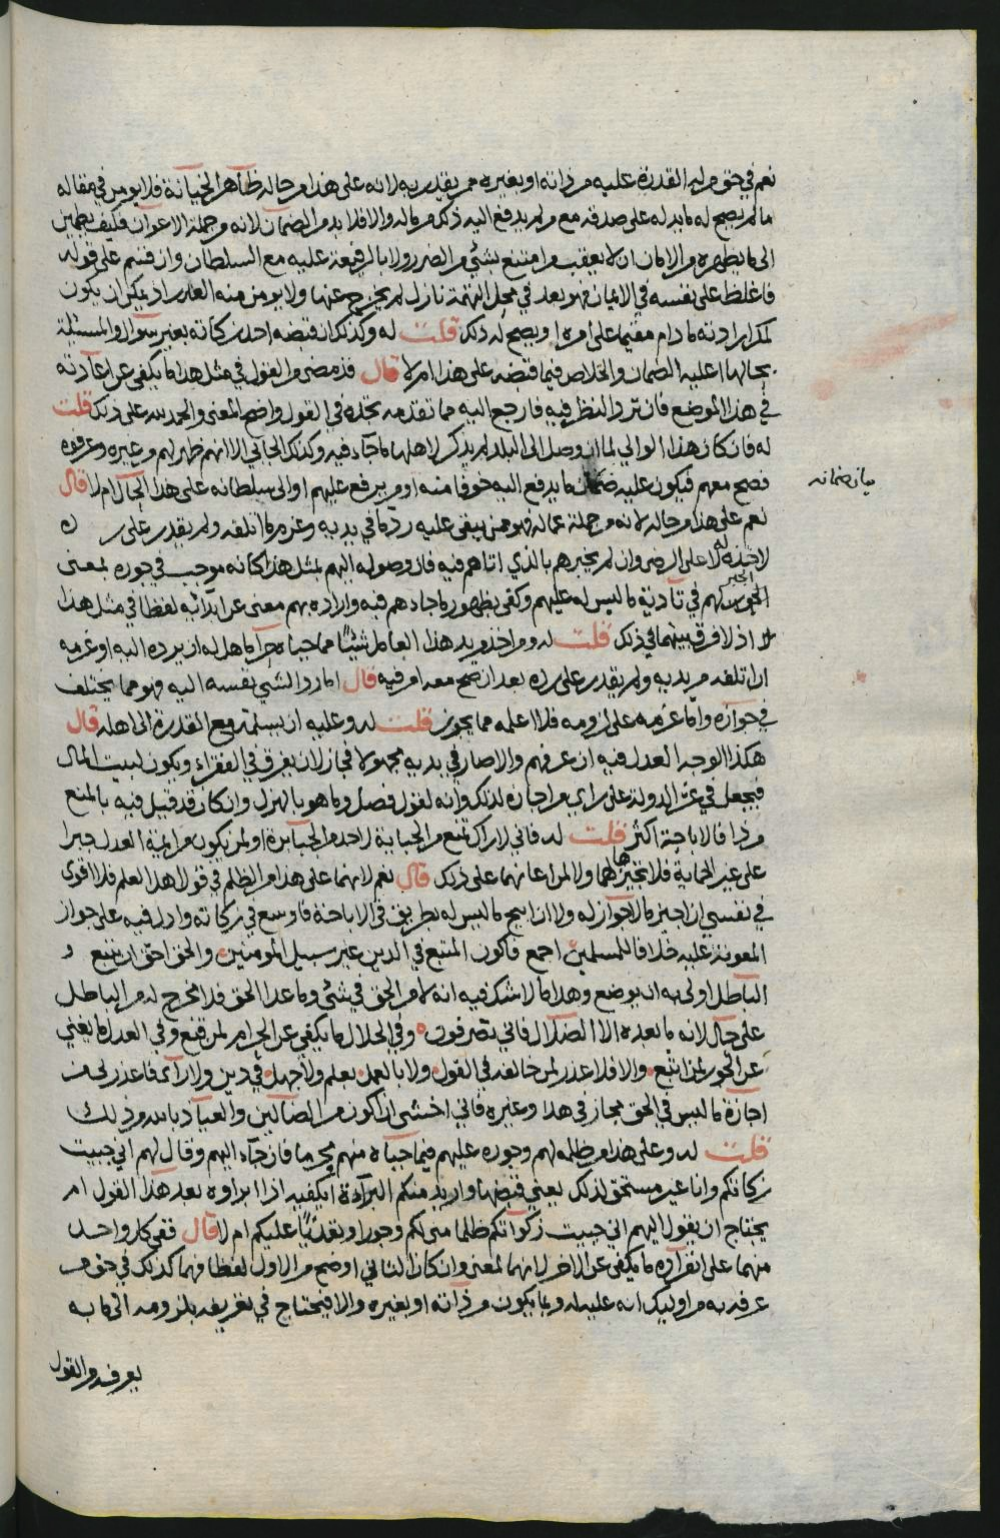 نعم في حق من له القدرة عليه من ذاته او بغيره ممن يقدر به لانه على هذا من حاله ظاهر الخيانة فلا يومن في مقاله
ما لم يصح له ما يدله على صدقه مع من لم يدفع اليه ذلك من ماله والا فلا بد من الضمان لانه من جملة الاعوان فكيف يطمين
الى ما يظهره من الامان ان لا يعقب من امتنع بشئ من الضرر ولا بالرفيعة عليه مع السلطان وان قسم على قوله
فاغلظ على نفسه في الايمان فهو بعد في محل التهمة نازل لم يخرج عنها ولا يومن منه الغدر اذ يمكن ان يكون
لمكر اراد به ما دام مقيما على امره او يصح له ذلك قلت له وكذلك ان قبضه احد زكاته بغير سوال والمسئلة
بحالها اعليه الضمان والخلاص فيما قبضه على هذا ام لا قال قد مضى من القول في مثل هذا ما يكفي عن اعادته
في هذا الموضع فان تر والنظر فيه فارجع اليه مما تقدمه تجده في القول واضح المعنى والحمد لله على ذلك قلت
له فان كان هذا الوالي لما ان وصل الى البلد لم يذكر لاهلها ما جاء فيه وكذلك الجابي الا انهم ظهر لهم من غيره وعرفوه
فصح معهم فيكون عليه ضمان ما يدفع اليه خوفا منه او من يرفع عليهم او الى سلطانه على هذا الحال ام لا قال
بيان ضمانه
نعم على هذا من حاله لانه من جملة عماله فهو ممن يبقى عليه رد ما في يديه وغرم ما اتلفه ولم يقدر على ر ده
لاخذه له لا على الرضى وان لم يخبرهم بالذي اتاهم فيه فان وصوله اليهم بمثل هذا كانه موجب في جوره بمعنى
الجبر لهم في تادية ما ليس له عليهم وكفى بظهور ما جاءهم فيه واراده بهم معنى عن ابدائه لفظا في مثل هذا
اذ لا فرق بينهما في ذلك قلت له ومن اخذ من يد هذا العامل شيئا مما جباه حراما هل له ان يرده اليه او غرمه
ان اتلفه من يديه ولم يقدر على رده بعد ان صح معه امر فيه قال اما رد الشئ بنفسه اليه فهو مما يختلف
في جوازه واما غرمه على لزومه فلا اعلمه مما يجوز قلت له وعليه ان يسلمه مع القدرة الى اهله قال
هكذا الوجه العدل فيه ان عرفهم والا صار في يديه مجهولا فجاز لان يفرق في الفقراء ويكون لبيت المال
فيجعل في عز الدولة على راي من اجازه لذلك وانه لقول فصل وما هو بالهزل وان كان قد قيل فيه بالمنع
من ذا فالاباحة اكثر قلت له فاني لاراك تمنع من الجباية لاحد من الجبابرة او لمن يكون من ايمة العدل جبرا
على غير الحماية فلا تجيزها لهما ولا لمن اعانهما على ذلك قال نعم لانهما على هذا من الظلم في قول اهل العلم فلا اقوى
في نفسي ان اجيز ما لا جواز له ولا ان ابيح ما ليس له بطريق في الاباحة فاوسع في زكاته وادل فيه على جواز
المعونة عليه خلافا للمسلمين اجمع فاكون المتبع في الدين غير سبيل المومنين والحق احق ان يتبع و
الباطل اولى به ان يوضع وهذا ما لا شك فيه انه لا من الحق في شئ وما عدا الحق فلا مخرج له من الباطل
على حال لانه ما بعده الا الضلال فانى تصرفون وفي الحلال ما يكفي عن الحرام لمن قنع وفي العدل ما يغني
عن الجور لمن اتبع والا فلا عذر لمن خالفه في القول ولا بالعمل بعلم ولا جهل في دين ولا راى فاعذرني من
اجازة ما ليس في الحق مجاز في هذا وغيره فاني اخشى ان اكون من الضالين والعياذ بالله من ذلك
قلت له وعلى هذا من ظلمه لهم وجوره عليهم فيما جباه منهم يجزيه ما فان جاء اليهم وقال لهم اني جبيت
زكاتكم وانا غير مستحق لذلك يعني قبضها واريد منكم البراءة ايكفيه اذا ابراوه بعد هذا القول ام
يحتاج ان يقول اليهم اني جبيت زكواتكم ظلما مني لكم وجورا وتعديا عليكم ام لا قال ففي كل واحد
منهما على انفراده ما يكفي عن الاخر لانهما لمعنى وان كان الثاني اوضح من الاول لفظا فهما كذلك في حق من
عرفه به من اوليك انه عليه له وما يكون من ذاته او بغيره والا فيحتاج في تعريفه بلزومه الى ما به
يعرفه من القول